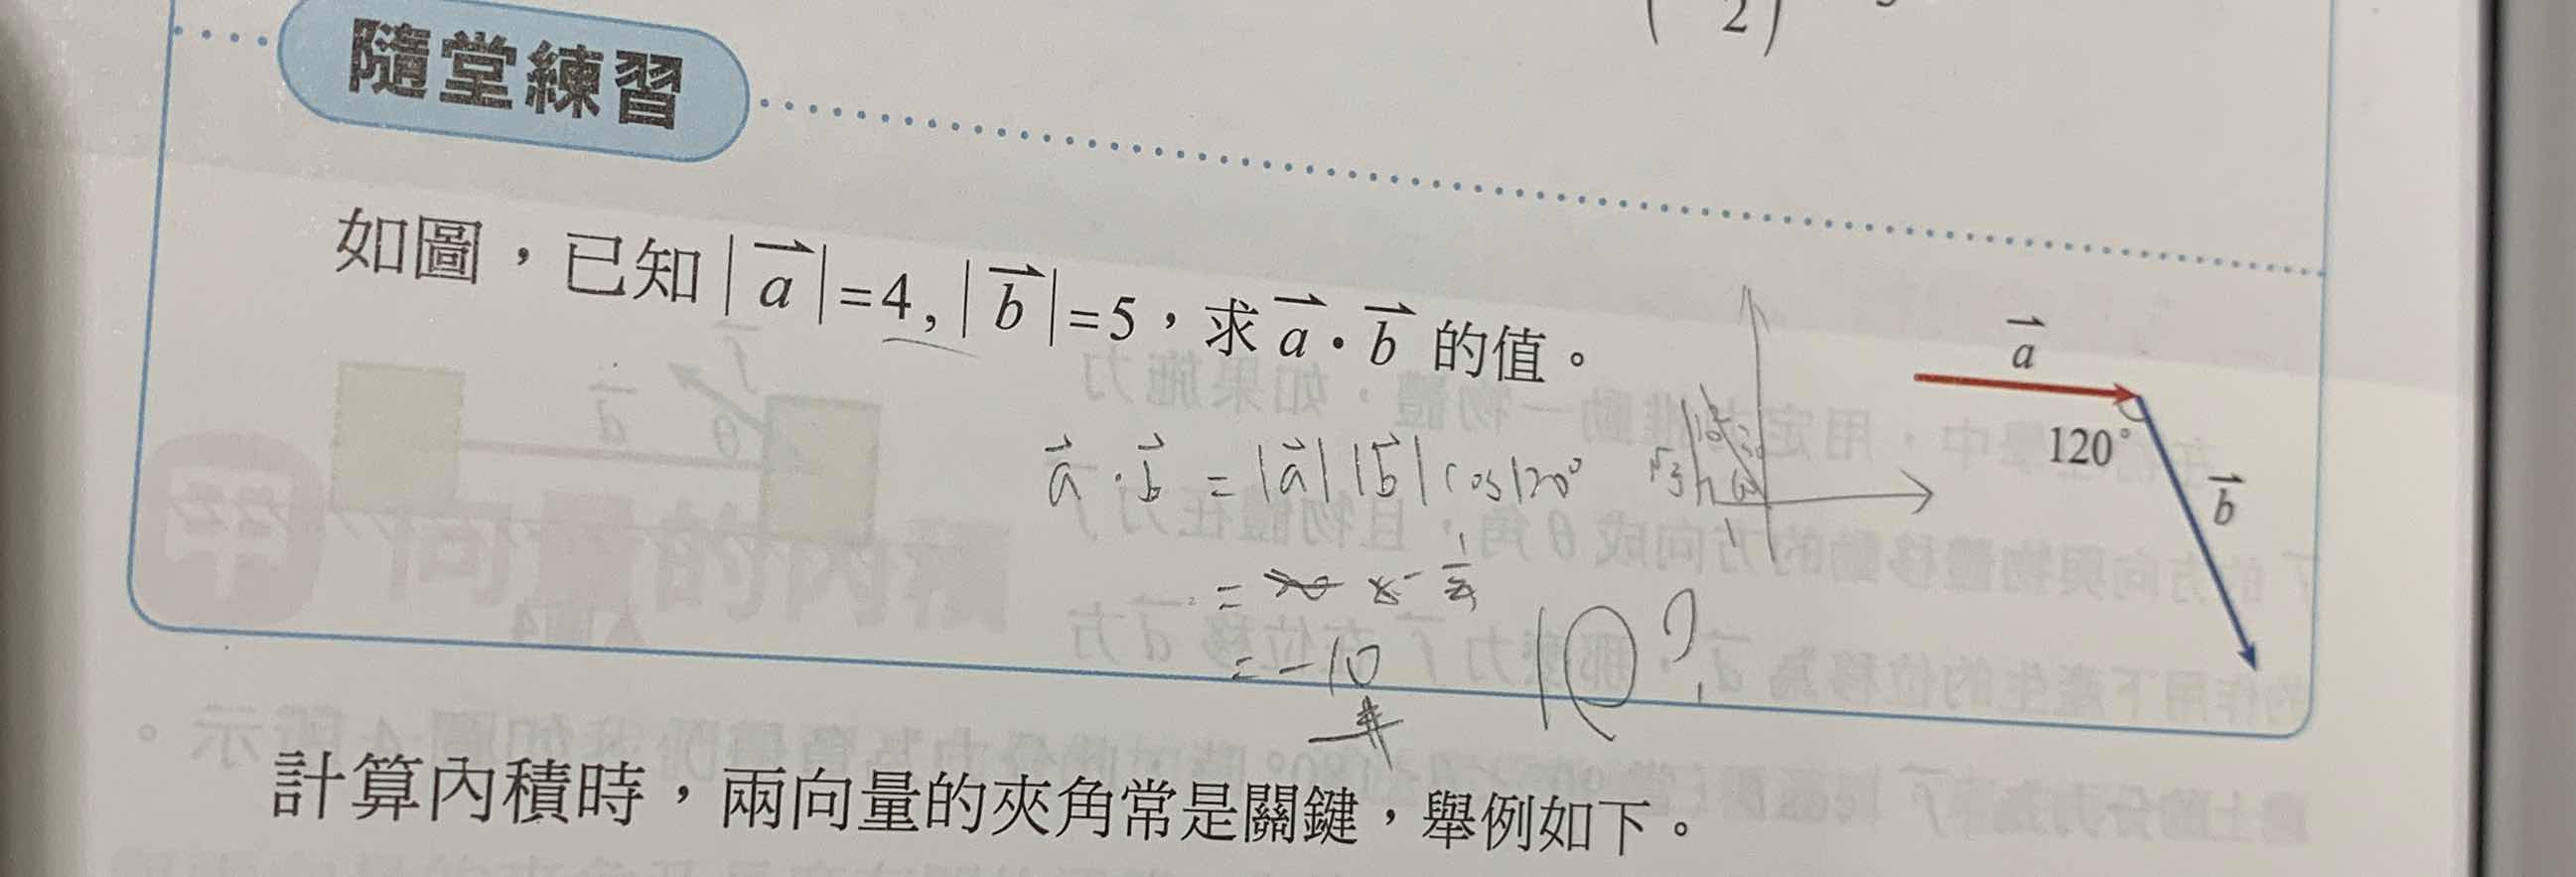 2
隨堂練習
如圖，已知|a|=4, |b|=5，求 a·b 的值。
a
120°
b
a·b = |a||b| cos120°
= -10
10?
計算內積時，兩向量的夾角常是關鍵，舉例如下。